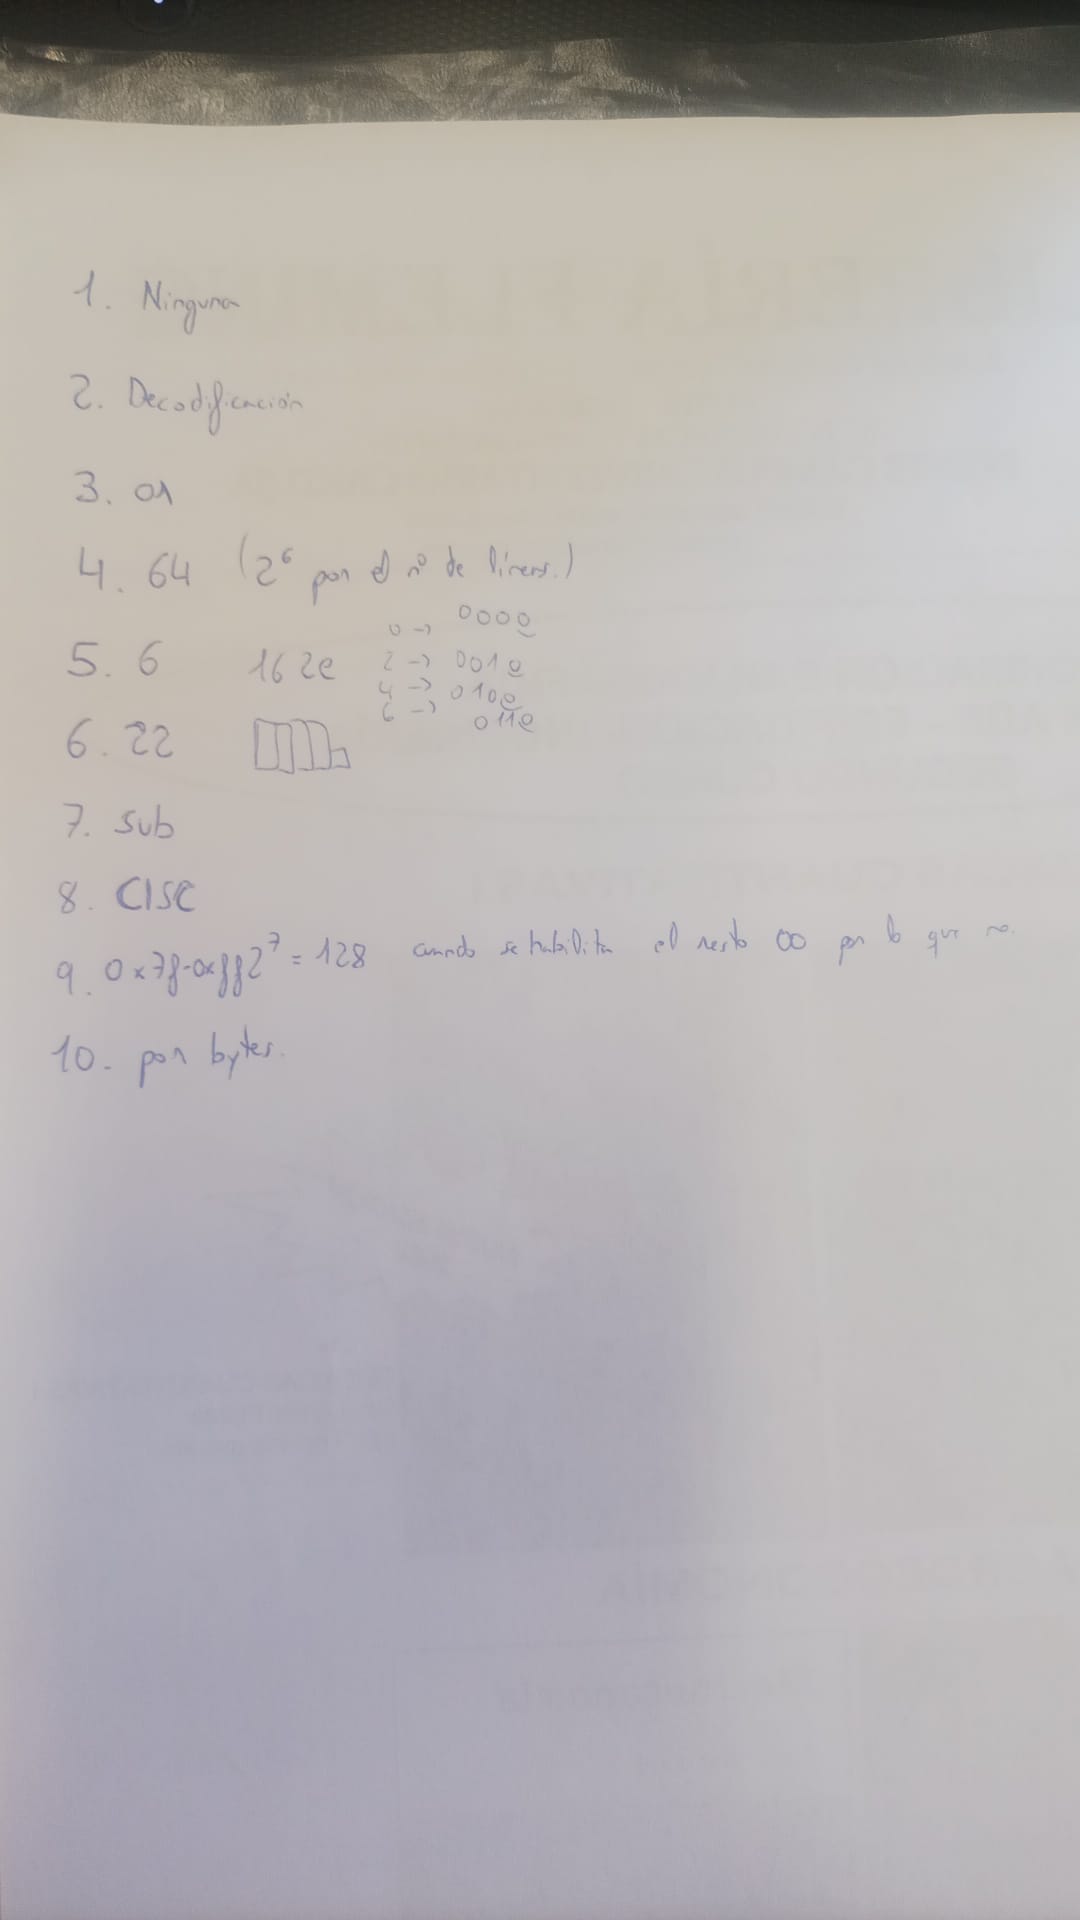 1. Ninguna
2. Decodificación
3. 01
4. 64 (2⁶ por el nº de líneas.)
5. 6 162e 0 -> 0000
2 -> 0010
4 -> 0100
6 -> 0110
6. 22
7. sub
8. CISC
9. 0x7f-0xff 2⁷ = 128 cuando se habilita el resto 00 por lo que no.
10. por bytes.